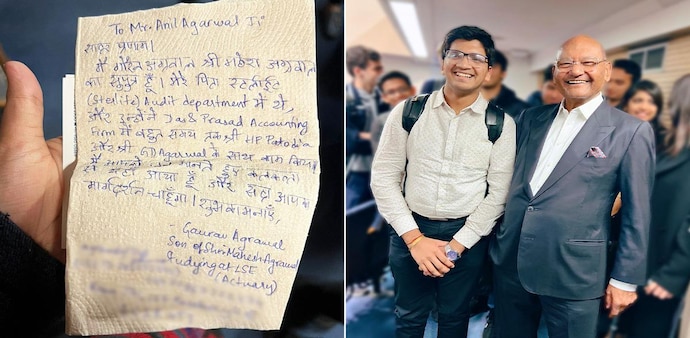 To Mr. Anil Agarwal Ji,
सादर प्रणाम।
मैं गौरव अग्रवाल श्री महेश अग्रवाल
का सुपुत्र हूँ। मेरे पिता स्टरलाईट
(Sterlite) Audit department में थे,
और उन्होंने Jas & Prasad Accounting
Firm में बहुत समय तक श्री HP Patodia
और श्री GD Agarwal के साथ काम किया
मार्गदर्शन चाहूँगा। शुभकामनाएँ,
- Gaurav Agrawal
Son of Shri Mahesh Agrawal
Studying at LSE
(Actuary)